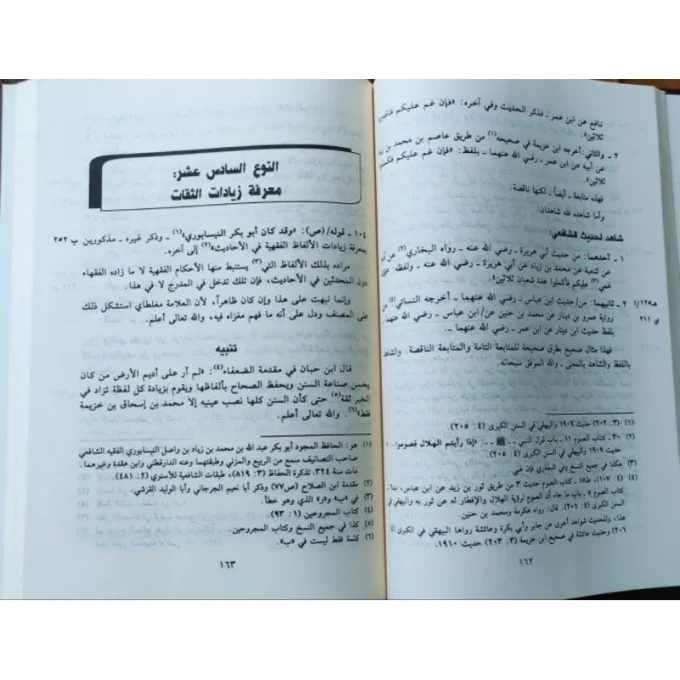 نافع عن ابن عمر ـ فذكر الحديث وفي آخره: «فإن غم عليكم
ثلاثين»
٢ ـ والثاني: أخرجه ابن خزيمة في صحيحه(١) من طريق عاصم بن محمد بن
عن أبيه عن ابن عمر ـ رضي الله عنهما ـ بلفظ: «فإن غم عليكم
ثلاثين».
فهذه متابعة ـ أيضاً ـ لكنها ناقصة.
وأما شاهده فله شاهدان:
شاهد لحديث الشافعي:
١ ـ أحدهما: من حديث أبي هريرة ـ رضي الله عنه ـ رواه البخاري(٢) عن
عن شعبة عن محمد بن زياد عن أبي هريرة ـ رضي الله عنه ـ ولفظه: «فإن
عليكم فأكملوا عدة شعبان ثلاثين»(٣).
٢ ـ ثانيهما: من/حديث ابن عباس ـ رضي الله عنهما ـ أخرجه النسائي(٤) من
رواية عمرو بن دينار عن محمد بن حنين عن/ابن عباس ـ رضي الله عنهما ـ
بلفظ حديث ابن دينار عن ابن عمر ـ رضي الله عنهما ـ.
فهذا مثال صحيح طرق صحيحة للمتابعة التامة والمتابعة الناقصة. والشاهد
باللفظ والشاهد بالمعنى. والله الموفق سبحانه.
(١) (٣: ٢٠٢) حديث ١٩٠٩ والبيهقي في السنن الكبرى (٤: ٢٠٥).
(٢) ٣٠ ـ كتاب الصوم ١١ ـ باب قول النبي ﷺ ـ: «إذا رأيتم الهلال فصوموا...»
حديث ١٩٠٧ والبيهقي في السنن الكبرى (٤: ٢٠٥).
(٣) هكذا في جميع النسخ وفي البخاري فإن غبي.
كتاب الصوم
السنن الكبرى (٤: ٢٠٦)، وقال: رواه عكرمة ومحمد بن حنين.
هذا، وللحديث شواهد أخرى عن جابر وأبي بكرة وعائشة رواها البيهقي في الكبرى (٤
٢٠٦) وحديث عائشة في صحيح ابن خزيمة (٣: ٢٠٣) حديث: ١٩١٠.
١٦٢
النوع السادس عشر:
معرفة زيادات الثقات
١٠٤ ـ قوله/(ص): «وقد كان أبو بكر النيسابوري»(١) ـ وذكر غيره ـ مذكورين ب ٢٥٢
بمعرفة زيادات الألفاظ الفقهية في الأحاديث»(٢) إلى آخره.
مراده بذلك الألفاظ التي(٣) يستنبط منها الأحكام الفقهية لا ما زاده الفقهاء
دون المحدثين في الأحاديث، فإن تلك تدخل في المدرج لا في هذا.
وإنما نبهت على هذا وإن كان ظاهراً، لأن العلامة مغلطاي استشكل ذلك
على المصنف ودل على أنه ما فهم مغزاه فيه، والله تعالى أعلم.
تنبيه
قال ابن حبان في مقدمة الضعفاء(٤): «لم أر على أديم الأرض من كان
يحسن صناعة السنن ويحفظ الصحاح بألفاظها ويقوم بزيادة كل لفظة تزاد في
الخبر ثقة(٥) حتى كأن السنن كلها نصب عينيه إلا محمد بن إسحاق بن خزيمة
فقط(٦). والله تعالى أعلم.
(١) هو: الحافظ المجود أبو بكر عبد الله بن محمد بن زياد بن واصل النيسابوري الفقيه الشافعي
صاحب التصانيف سمع من الربيع والمزني وطبقتهما وعنه الدارقطني وابن عقدة وغيرهما.
مات سنة ٣٢٤. تذكرة الحفاظ (٣: ٨١٩)، طبقات الشافعية للأسنوي (٢: ٤٨١).
(٢) مقدمة ابن الصلاح (ص٧٧) وذكر أبا نعيم الجرجاني وأبا الوليد القرشي.
(٣) في «ب» و«ر» الذي وهو خطأ.
(٤) كتاب المجروحين (١: ٩٣).
(٥) كذا في جميع النسخ وكتاب المجروحين.
(٦) كلمة فقط ليست في «ب».
١٦٣